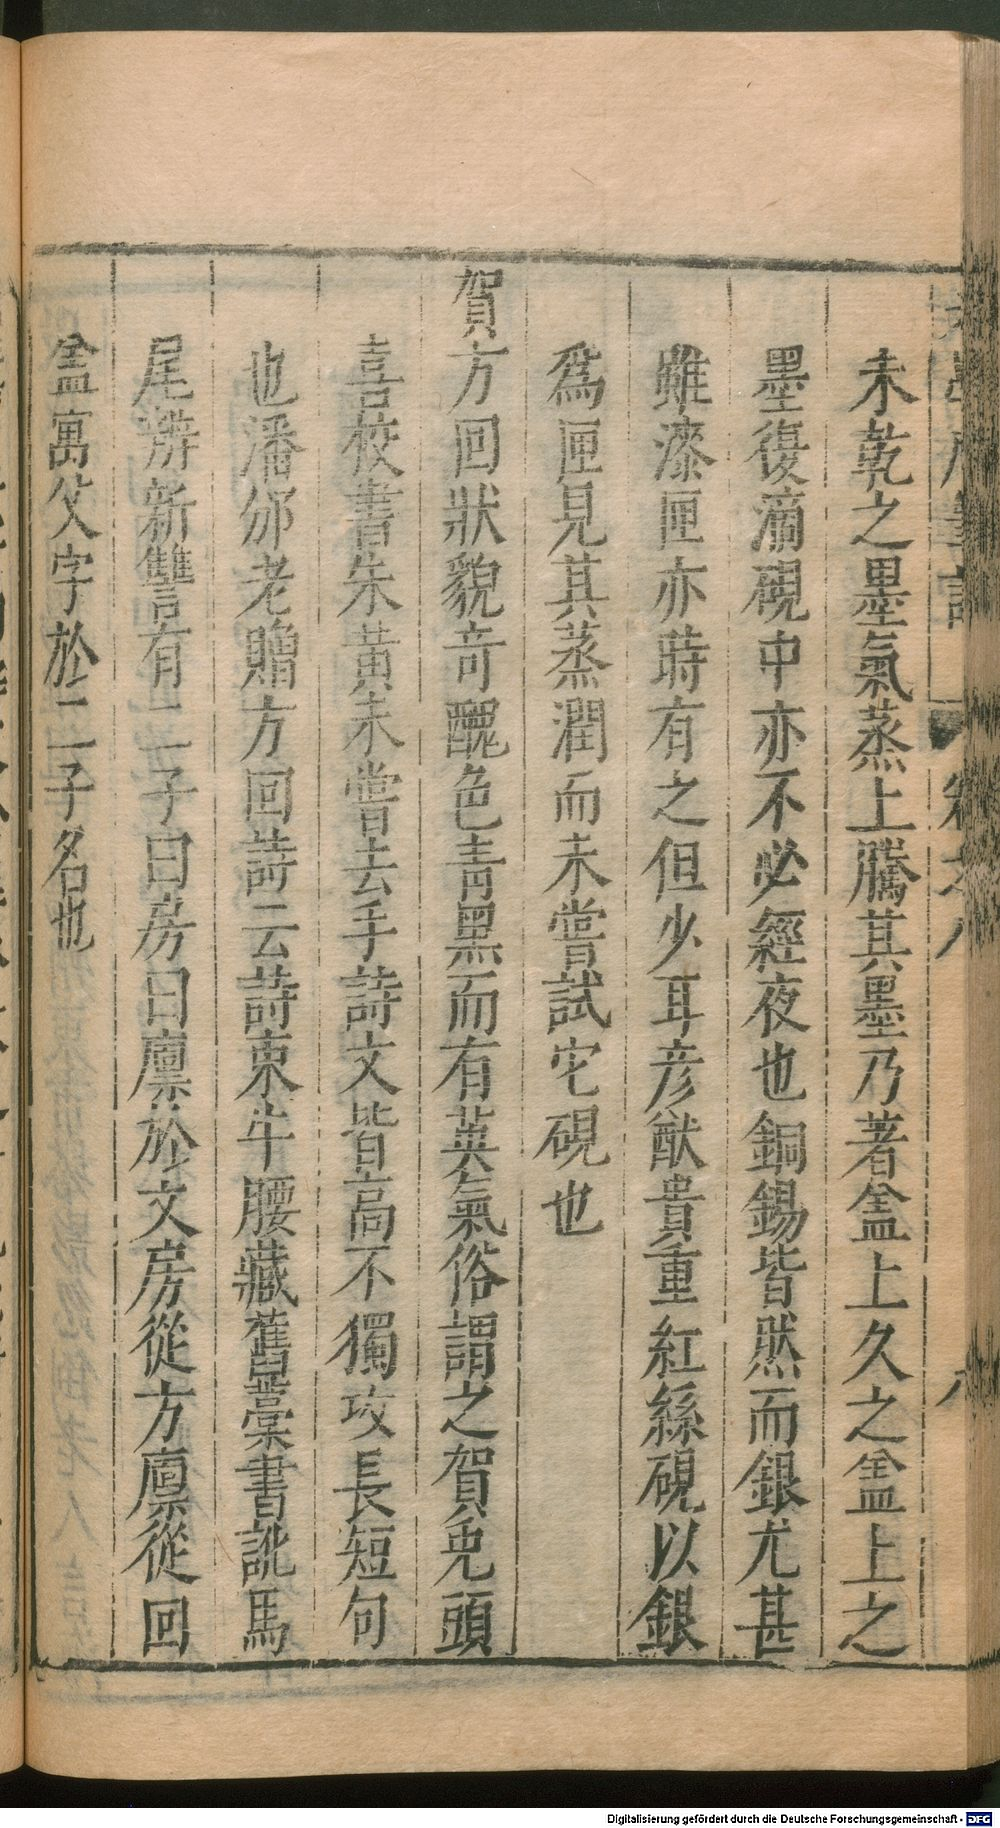 未乾之墨氣蒸上騰其墨乃著盒上久之盒上之
墨復滴硯中亦不必經夜也銅錫皆然而銀尤甚
雖漆匣亦時有之但少耳彥猷貴重紅絲硯以銀
爲匣見其蒸潤而未嘗試它硯也
賀方回狀貌奇醜色青黑而有英氣俗謂之賀鬼頭
喜校書朱黃未嘗去手詩文皆高不獨攻長短句
也潘邠老贈方回詩云詩束牛腰藏舊藁書訛馬
尾辨新讐有二子曰房曰廩於文房從方廩從回
盒寓父字於二子名也
Digitalisierung gefördert durch die Deutsche Forschungsgemeinschaft - DFG